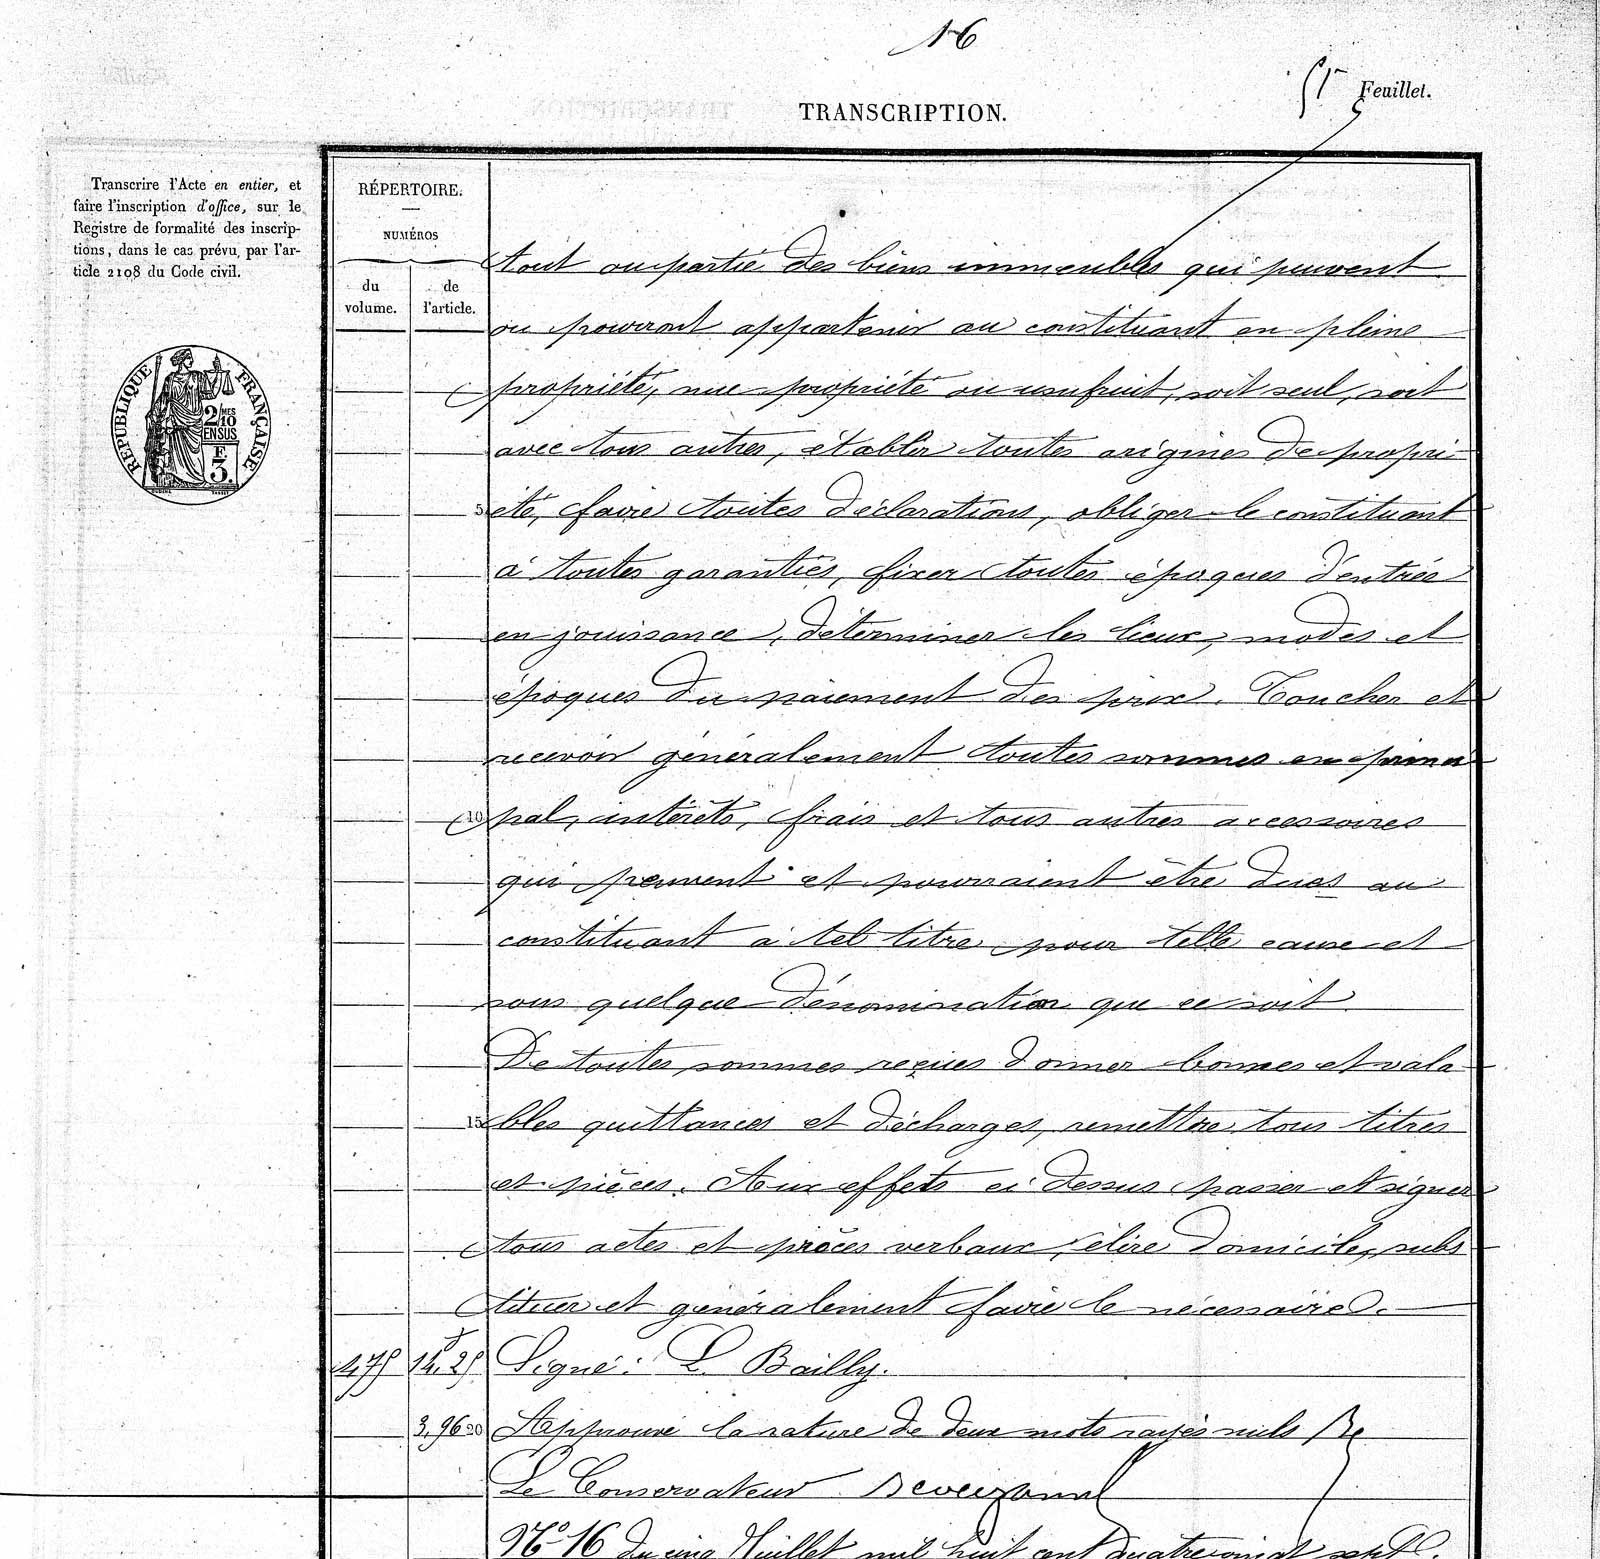 16
51e Feuillet.
TRANSCRIPTION.
Transcrire l'Acte en entier, et
faire l'inscription d'office, sur le
Registre de formalité des inscrip-
tions, dans le cas prévu par l'ar-
ticle 2108 du Code civil.
RÉPUBLIQUE FRANÇAISE
2/10
MES
EN SUS
F
3.
RÉPERTOIRE.
NUMÉROS
du volume.
de l'article.
tout ou partie des biens immeubles qui peuvent
ou pourront appartenir au constituant en pleine
propriété, nue propriété ou usufruit, soit seul, soit
avec tous autres, établir toutes origines de propri-
5 été, faire toutes déclarations, obliger le constituant
à toutes garanties, fixer toutes époques d'entrée
en jouissance, déterminer les lieux, modes et
époques du paiement des prix. Toucher et
recevoir généralement toutes sommes en princi
10 pal, intérêts, frais et tous autres accessoires
qui peuvent et pourraient être dues au
constituant à tel titre pour telle cause et
sous quelque dénomination que ce soit
De toutes sommes reçues donner bonnes et vala
15 bles quittances et décharges, remettre tous titres
et pièces. Aux effets ci dessus passer et signer
tous actes et procès verbaux, élire domicile, subs
tituer et généralement faire le nécessaire.
4,75 14,25 Signé: L. Bailly.
3,96 20 Approuvé la rature de deux mots rayés nuls
Le Conservateur
No 16 du cinq Juillet mil huit cent quatre vingt sept.